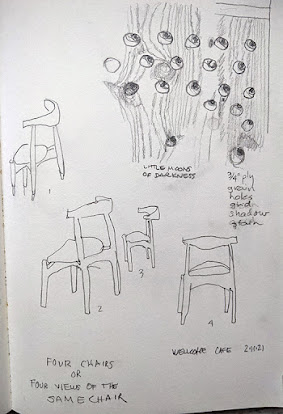 LITTLE MOONS
OF DARKNESS
3/4" ply
grain
holes
grain
shadow
grain
1
2
3
4
WELLCOME CAFE 24.10.21
FOUR CHAIRS
OR
FOUR VIEWS OF THE
SAME CHAIR